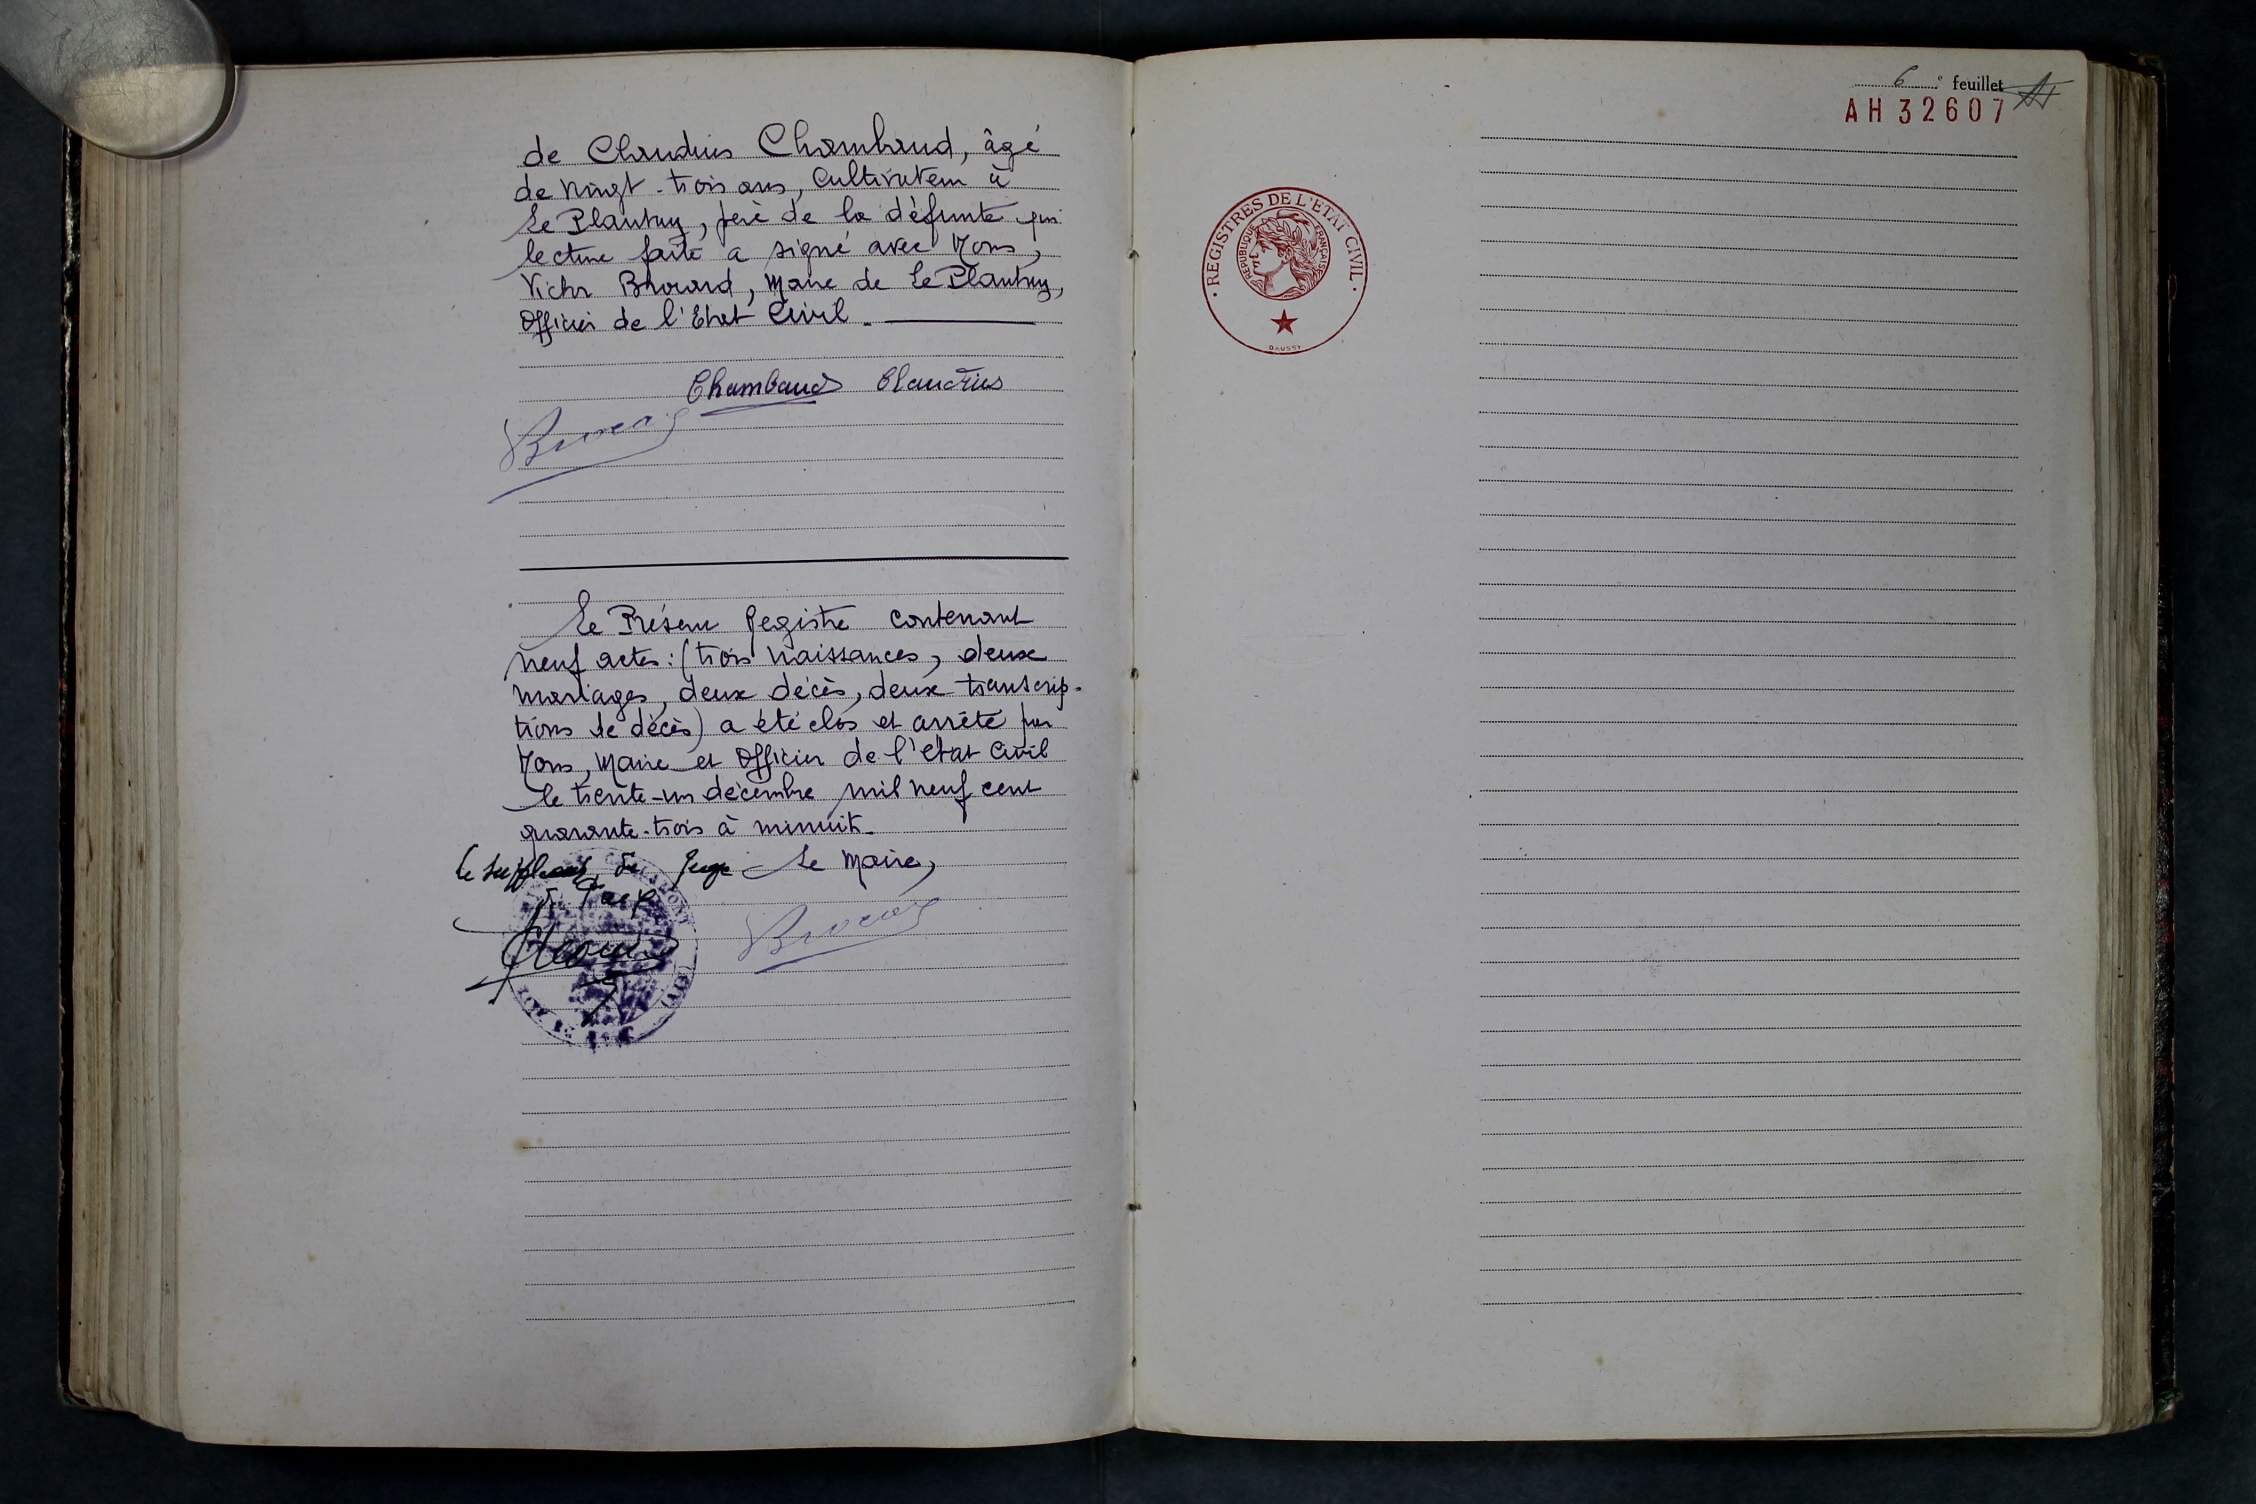 de Claudius Chambaud, âgé
de vingt-trois ans, Cultivateur à
Le Plantay, père de la défunte qui
lecture faite a signé avec Nous,
Victor Brovard, Maire de Le Plantay,
Officier de l'Etat Civil.
Chambaud Claudius
Le Présent Registre contenant
neuf actes: (trois naissances, deux
mariages, deux décès, deux transcrip-
tions de décès) a été clos et arrêté par
Nous, Maire et Officier de l'Etat Civil
le trente-un décembre mil neuf cent
quarante-trois à minuit.
Le suppléant du Juge
de Paix
Le Maire,
6e feuillet
AH 32607
· REGISTRES DE L'ETAT CIVIL ·
REPUBLIQUE FRANÇAISE
DAUSSY